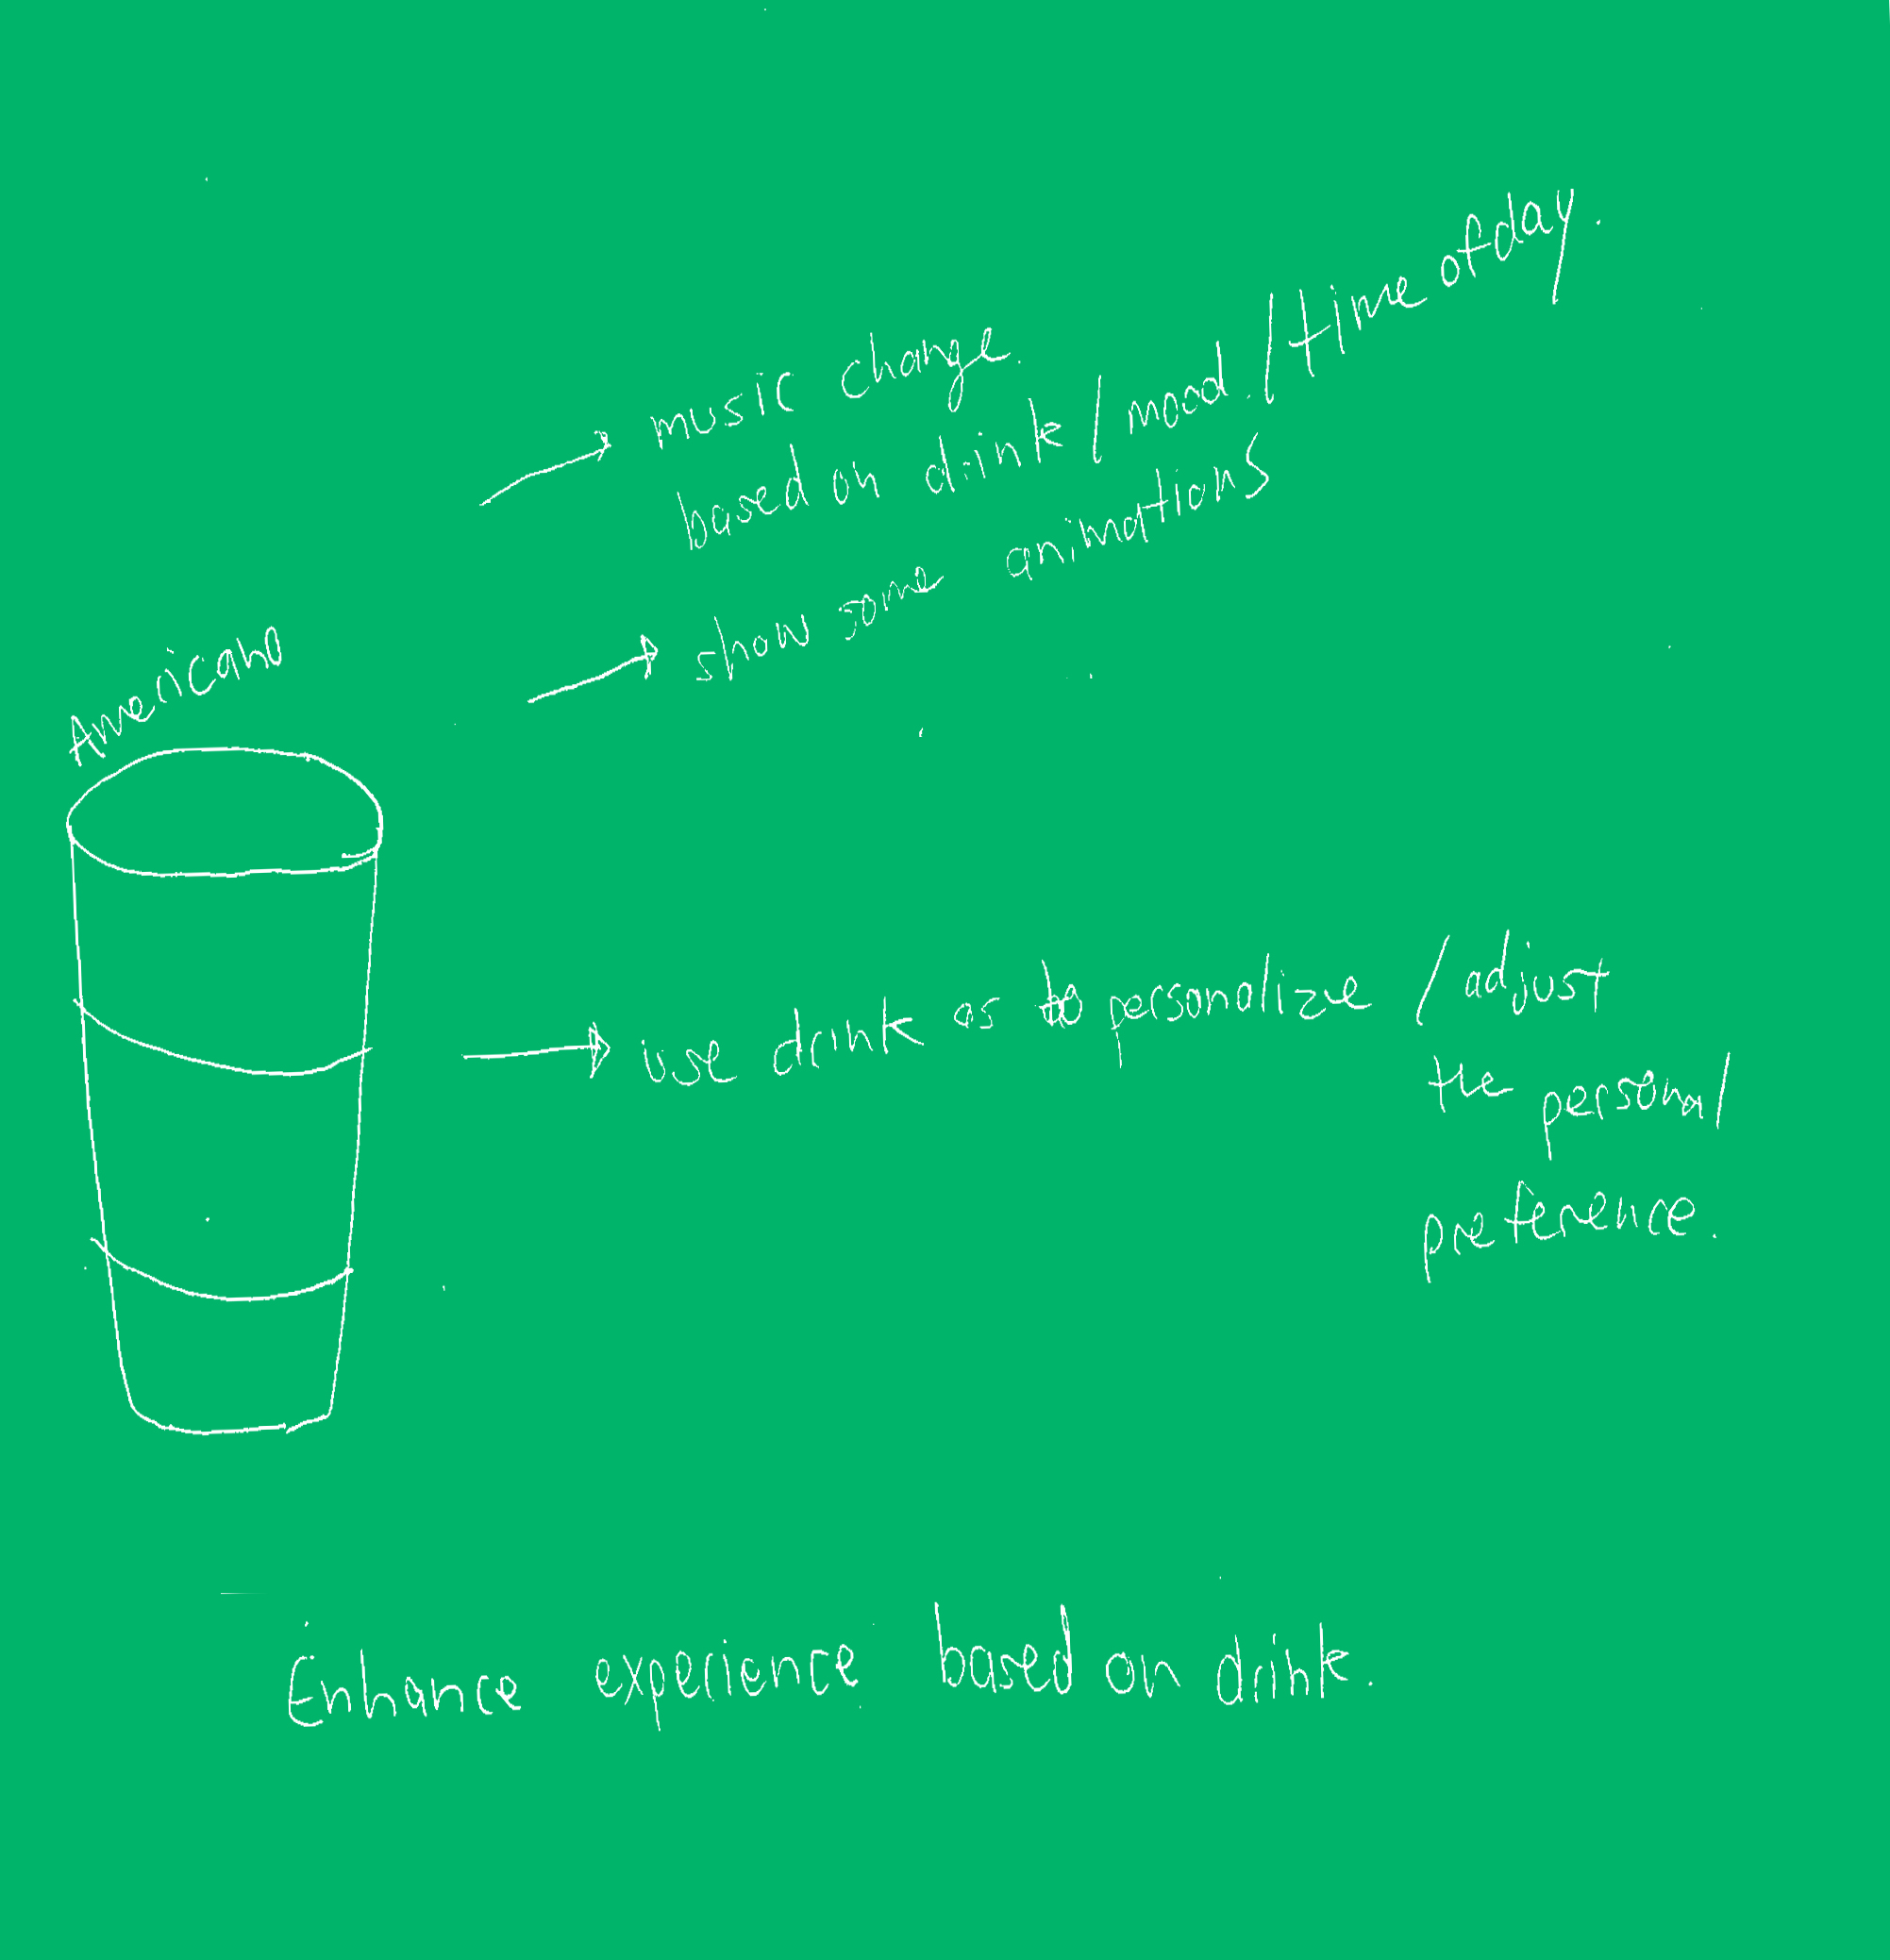 music change.
based on drink / mood. / time of day.
show some animations
Americano
use drink as to personalize / adjust
the personal
preference.
Enhance experience based on drink.